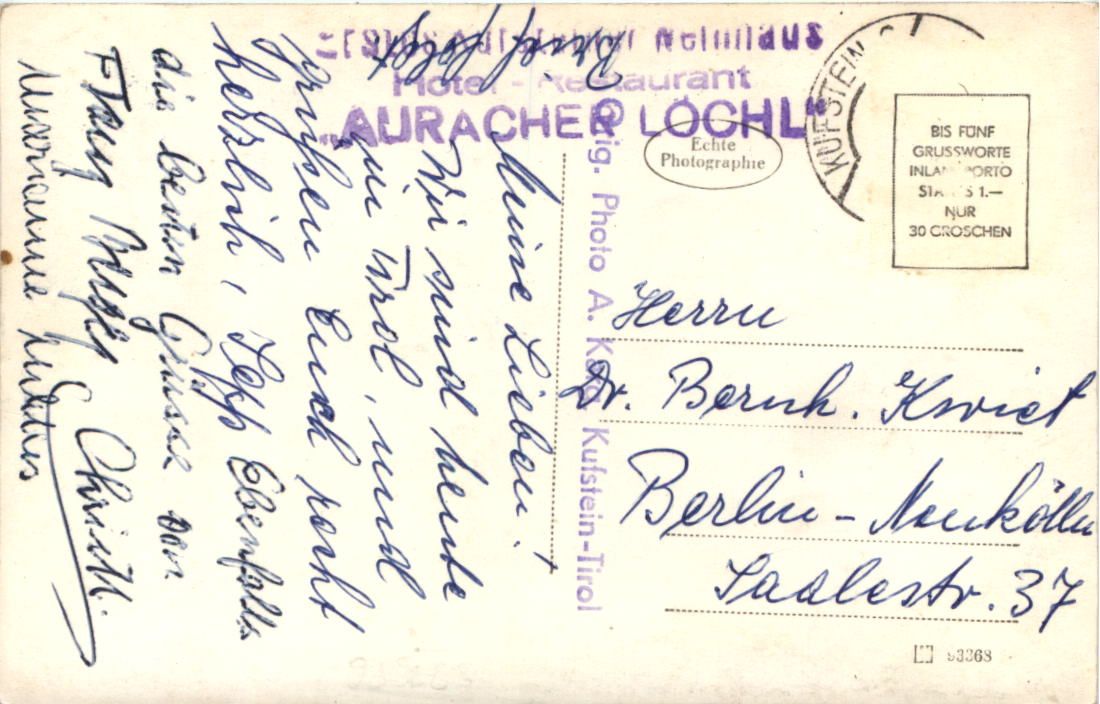 Erstes Autri Weinhaus
Hotel - Restaurant
„AURACHER LÖCHL“
KUFSTEIN
Echte
Photographie
BIS FÜNF
GRUSSWORTE
INLANDPORTO
STATT S 1.—
NUR
30 GROSCHEN
Orig. Photo A. Karg Kufstein-Tirol
Brief folgt
Meine Lieben!
Wir sind heute
in Tirol, und
grüßen Euch recht
herzlich, Sepp Ebenfalls
die besten Grüsse von
Christl.
Marianne
Herrn
Dr. Bernh. Kwiet
Berlin - Neukölln
Saalestr. 37
93368